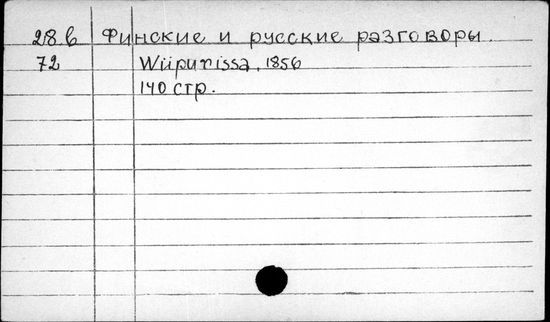 28.б Финские и русские разговоры.
72 Wiipurissa, 1856
140 стр.